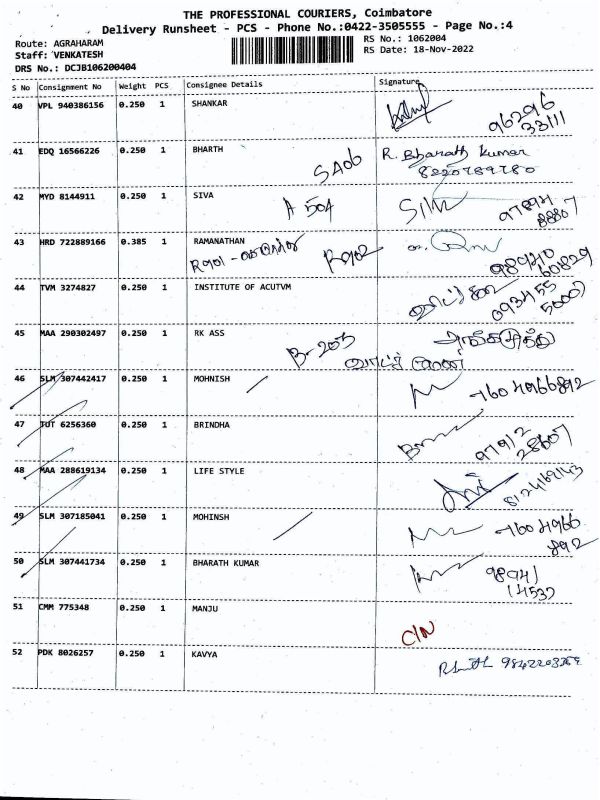 THE PROFESSIONAL COURIERS, Coimbatore
Delivery Runsheet - PCS - Phone No.:0422-3505555 - Page No.:4
Route: AGRAHARAM
RS No.: 1062004
Staff: VENKATESH
RS Date: 18-Nov-2022
DRS No.: DCJB106200404
S No Consignment No Weight PCS Consignee Details Signature
40 VPL 940386156 0.250 1 SHANKAR
96296
33111
41 EDQ 16566226 0.250 1 BHARTH R. Bharath Kumar
SA06 8220789780
42 MYD 8144911 0.250 1 SIVA
A 504 97894
88807
43 HRD 722889166 0.385 1 RAMANATHAN
R901 - R902 98940
60829
44 TVM 3274827 0.250 1 INSTITUTE OF ACUTVM
093455
5000
45 MAA 290302497 0.250 1 RK ASS
B-203
46 SLM 307442417 0.250 1 MOHNISH
7604966892
47 TUT 6256360 0.250 1 BRINDHA
97912
28607
48 MAA 288619134 0.250 1 LIFE STYLE
8124169143
49 SLM 307185041 0.250 1 MOHINSH
7604966
892
50 SLM 307441734 0.250 1 BHARATH KUMAR
98941
14537
51 CMM 775348 0.250 1 MANJU
C/N
52 PDK 8026257 0.250 1 KAVYA